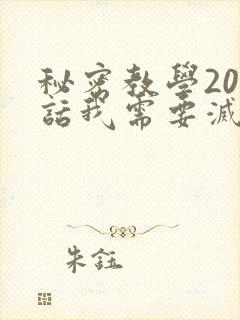 秘密教學20
話我需要滅
朱鈺